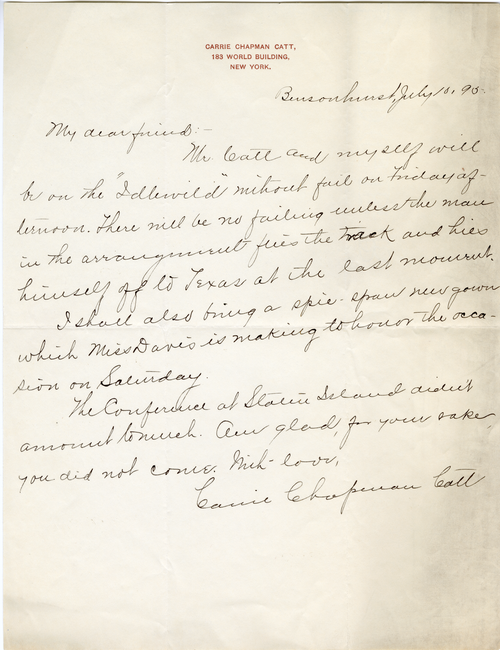 CARRIE CHAPMAN CATT,
183 WORLD BUILDING,
NEW YORK.
Bensonhurst, July 10, 95
My dear friend:-
Mr. Catt and myself will
be on the "Idlewild" without fail on Friday af-
ternoon. There will be no failing unless the man
in the arrangement flies the track and hies
himself off to Texas at the last moment.
I shall also bring a spic-span new gown
which Miss Davis is making to honor the occa-
sion on Saturday.
The Conference at Staten Island didn't
amount to much. Am glad, for your sake,
you did not come. With love,
Carrie Chapman Catt